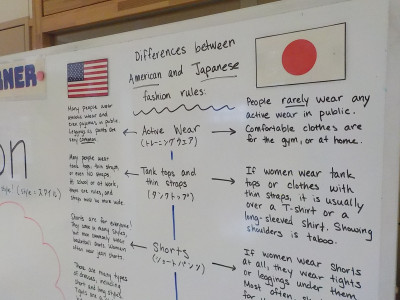 RNER
on
(style = スタイル)
Differences between
American and Japanese
fashion rules:
Many people wear
active wear and
even pajamas in public.
Leggings as pants are
very common.
Active Wear
(トレーニングウェア)
People rarely wear any
active wear in public.
Comfortable clothes are
for the gym, or at home.
Many people wear
tank tops, thin straps,
or even no straps.
At school or at work,
there are rules, and
straps must be more wide.
Tank tops and
thin straps
(タンクトップ)
If women wear tank
tops or clothes with
thin straps, it is usually
over a T-shirt or a
long-sleeved shirt. Showing
shoulders is taboo.
Shorts are for everyone!
They come in many styles,
but men commonly wear
basketball shorts. Women
often wear jean shorts.
Shorts
(ショートパンツ)
If women wear shorts
at all, they wear tights
or leggings under them.
Most often, s
There are many types
of dresses, including
short and long styles.
Tights are